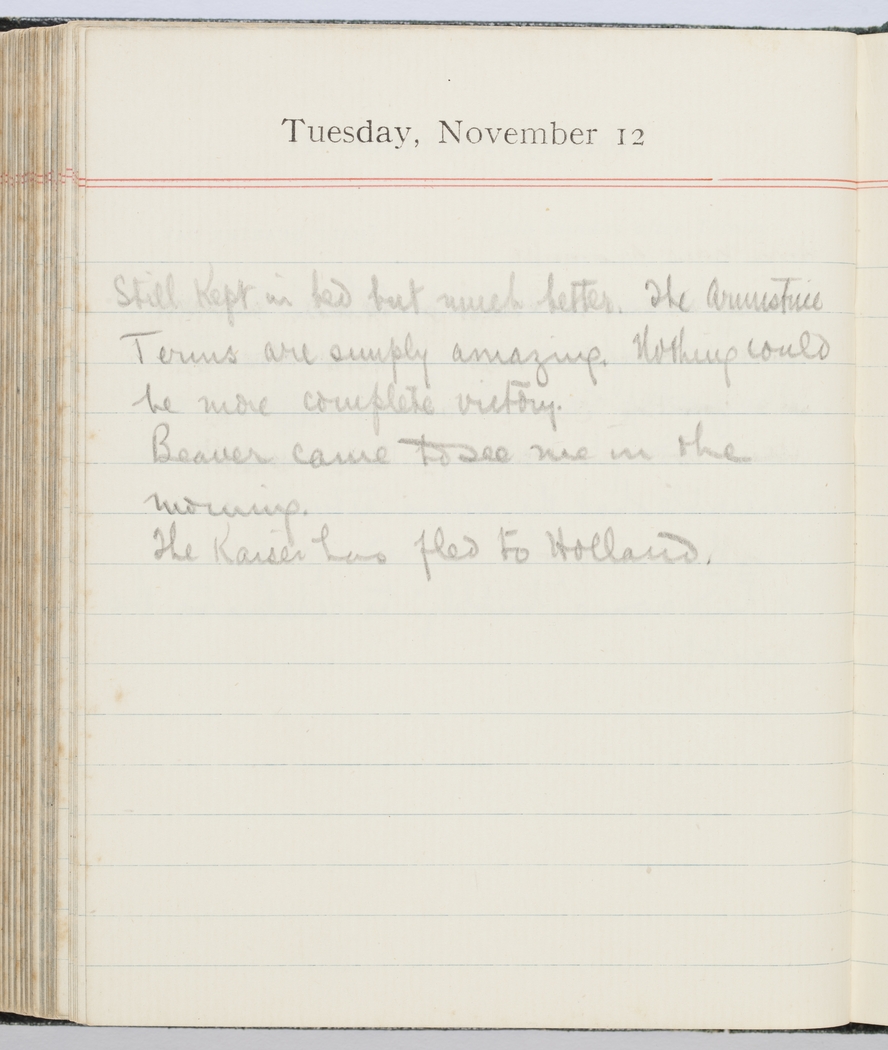 Tuesday, November 12
Still Kept in bed but much better. The Armistice
Terms are simply amazing. Nothing could
be more complete victory.
Beaver came to see me in the
morning.
The Kaiser has fled to Holland.